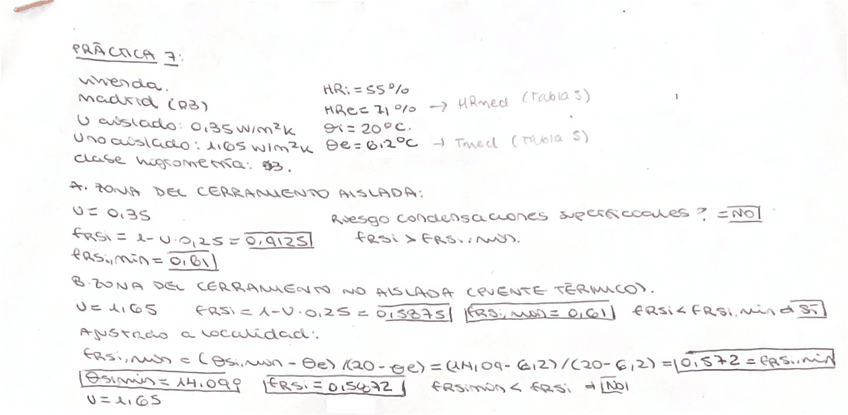 PRÁCTICA 7:
vivienda. HRi = 55%
Madrid (D3) HRe = 71% → HRmed (Tabla 5)
U aislado: 0,35 W/m²K θi = 20ºC.
U no aislado: 1,65 W/m²K θe = 6,2ºC → Tmed (Tabla 5)
clase higrometría: 3.
A. ZONA DEL CERRAMIENTO AISLADA:
U = 0,35 Riesgo condensaciones superficiales? = NO
fRSi = 1-U·0,25 = 0,9125 fRSi > fRSi,min.
fRSi,min = 0,61
B. ZONA DEL CERRAMIENTO NO AISLADA (PUENTE TÉRMICO).
U = 1,65 fRSi = 1-U·0,25 = 0,5875 fRSi,min = 0,61 fRSi < fRSi,min → Sí
Ajustado a localidad:
fRSi,min = (θsi,min - θe) / (20 - θe) = (14,09 - 6,2) / (20 - 6,2) = 0,572 = fRSi,min
θsimin = 14,099 fRSi = 0,5872 fRSimin < fRSi → NO
U = 1,65